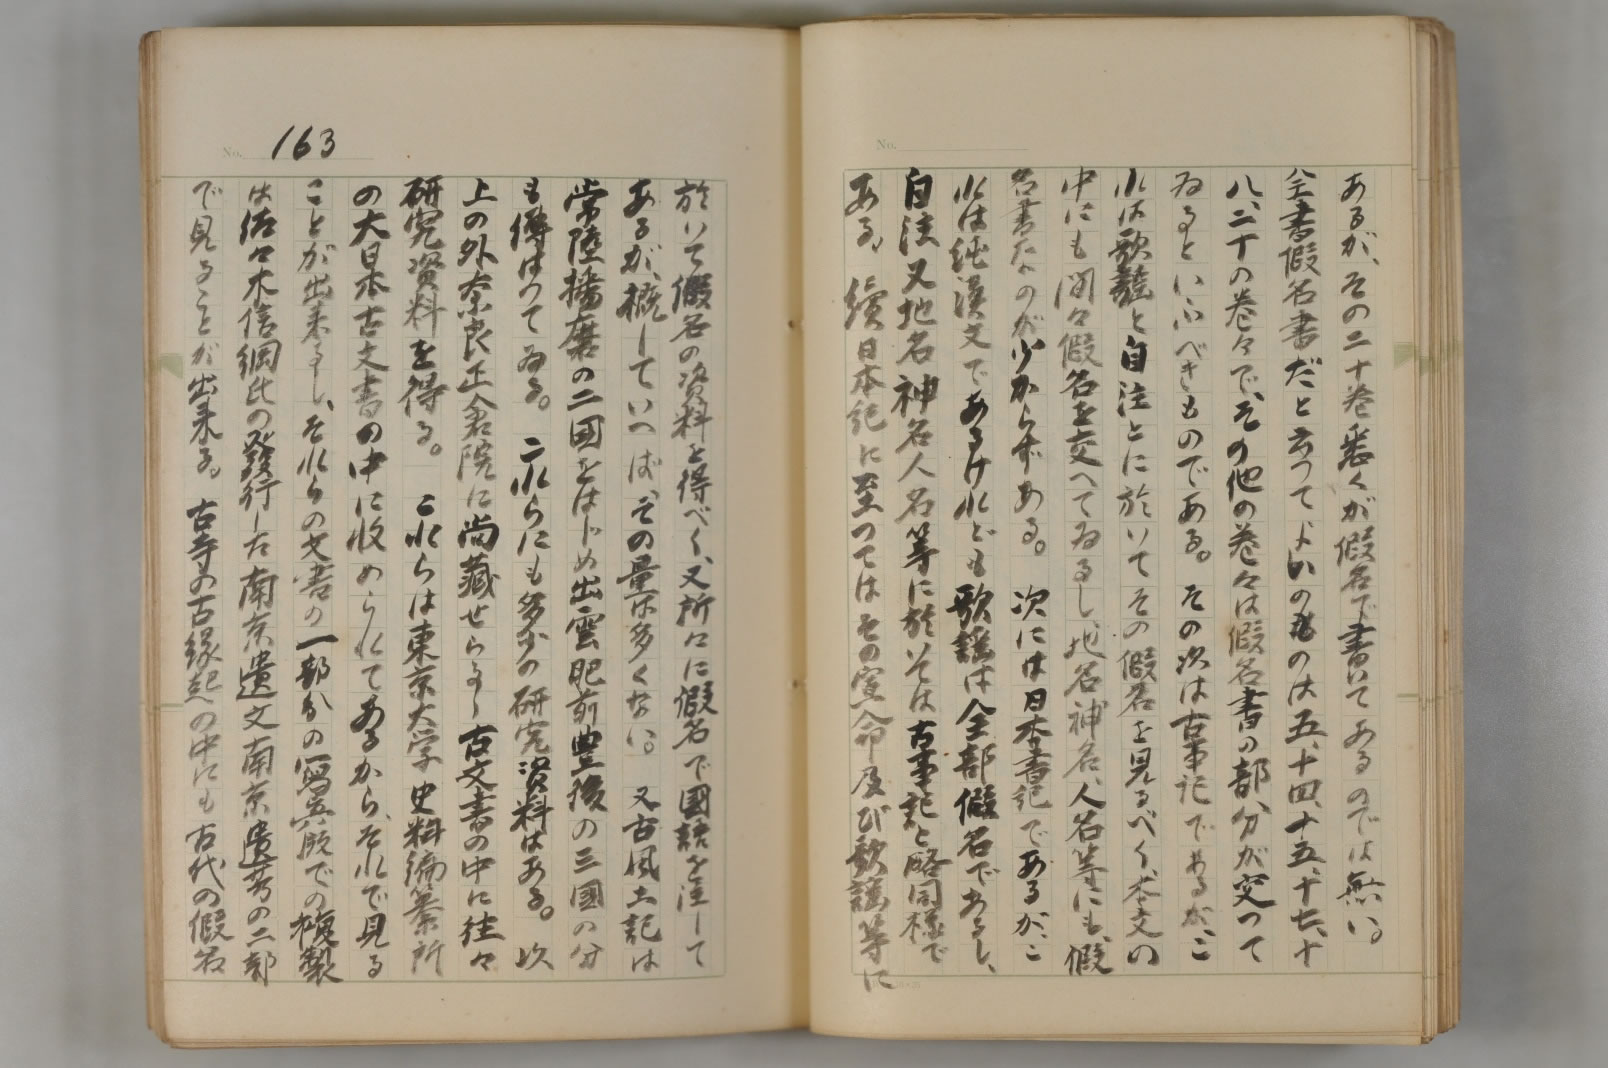 No.
あるが、その二十巻悉くが假名で書いてあるのでは無い。
全書假名書だと云つてよいのものは五、十四、十五、十七、十
八、二十の巻々で、その他の巻々は假名書の部分が交つて
ゐるといふべきものである。その次は古事記であるが、こ
れは歌謠と自注とに於いてその假名を見るべく、本文の
中にも間々假名を交へてゐるし、地名神名、人名等にも、假
名書なのが少からずある。次には日本書紀であるが、こ
れは純漢文であるけれども歌謠は全部假名であるし、
自注又地名神名人名等に於いては古事記と略同様で
ある。續日本紀に至つてはその宣命及び歌謠等に
No. 163
於いて假名の資料を得べく、又所々に假名で國語を注して
あるが、概していへば、その量は多くない。又古風土記は
常陸播磨の二國をはじめ出雲肥前豊後の三國の分
も傳はつてゐる。これらにも多少の研究資料はある。以
上の外奈良正倉院に尚藏せらるゝ古文書の中に往々
研究資料を得る。これらは東京大学史料編纂所
の大日本古文書の中に收められてあるから、それで見る
ことが出来るし、それらの文書の一部分の寫真版での複製
は佐々木信綱氏の發行した南京遺文南京遺芳の二部
で見ることが出来る。古寺の古縁起の中にも古代の假名